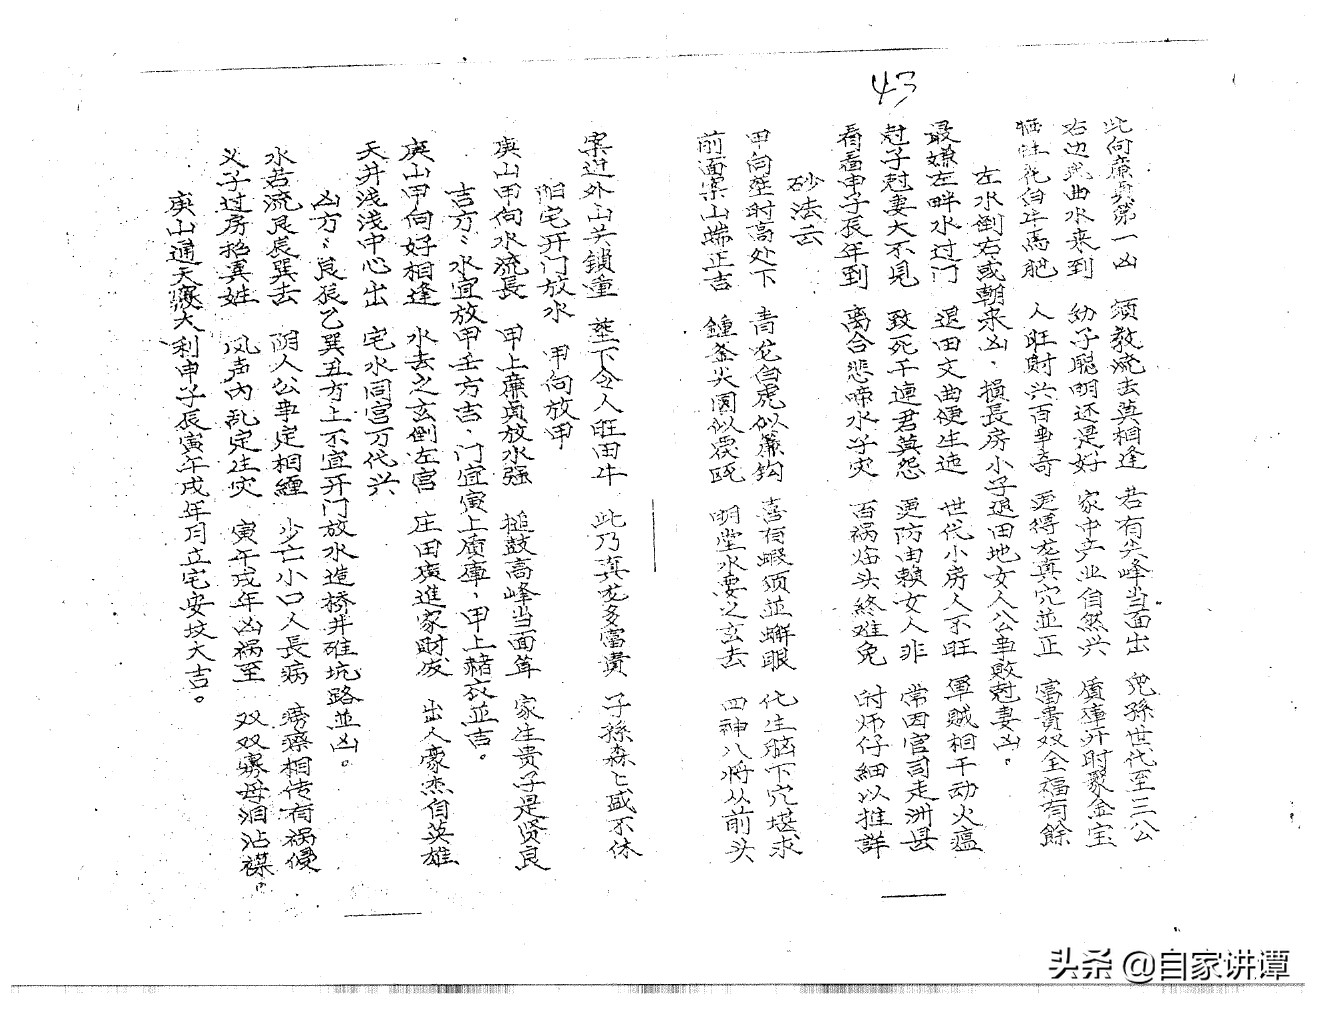 43
此向廉貞第一凶 须教流去莫相逢 若有尖峰当面出 児孫世代至三公
右边武曲水来到 幼子聪明还是好 家中产业自然兴 廣庫开时聚金宝
牺牲花白牛馬肥 人旺财兴百事奇 更得龙真穴並正 富貴双全福有餘
左水倒右或朝来凶、損長房小子退田地女人公事敗尅妻凶。
最嫌左畔水过门 退田文曲便生迍 世代小房人不旺 軍賊相干动火瘟
尅子尅妻大不見 致死千連君莫怨 更防由賴女人非 常因官司走洲县
看看申子辰年到 离合悲啼水子灾 百祸临头終难免 时师仔細以推詳
砂法云
甲向塋时高处下 青龙白虎似簾鈎 喜有蝦须並蠏眼 化生脑下穴堪求
前面案山端正吉 鍾釜尖圆似覆瓯 明堂水要之玄去 四神八将从前头
案近外山关鎖重 塟下令人旺田牛 此乃真龙多富貴 子孫森々盛不休
阳宅开门放水 甲向放甲
庚山甲向水流長 甲上廉貞放水强 搥鼓高峰当面耸 家生贵子是贤良
吉方:水宜放甲壬方吉、门宜寅上廣庫、甲上赭衣並吉。
庚山甲向好相逢 水去之玄倒左宫 庄田廣進家财成 出人豪杰自英雄
天井浅浅中心出 宅水同宫万代兴
凶方:艮辰乙巽丑方上不宜开门放水造桥井碓坑路並凶。
水若流艮辰巽去 阴人公事定相纏 少亡小口人長病 痨瘵相传有祸侵
义子过房招異姓 风声内乱定生灾 寅午戌年凶祸至 双双寡母泪沾襟。
庚山通天竅大利申子辰寅午戌年月立宅安坟大吉。
头条 @自家讲谭